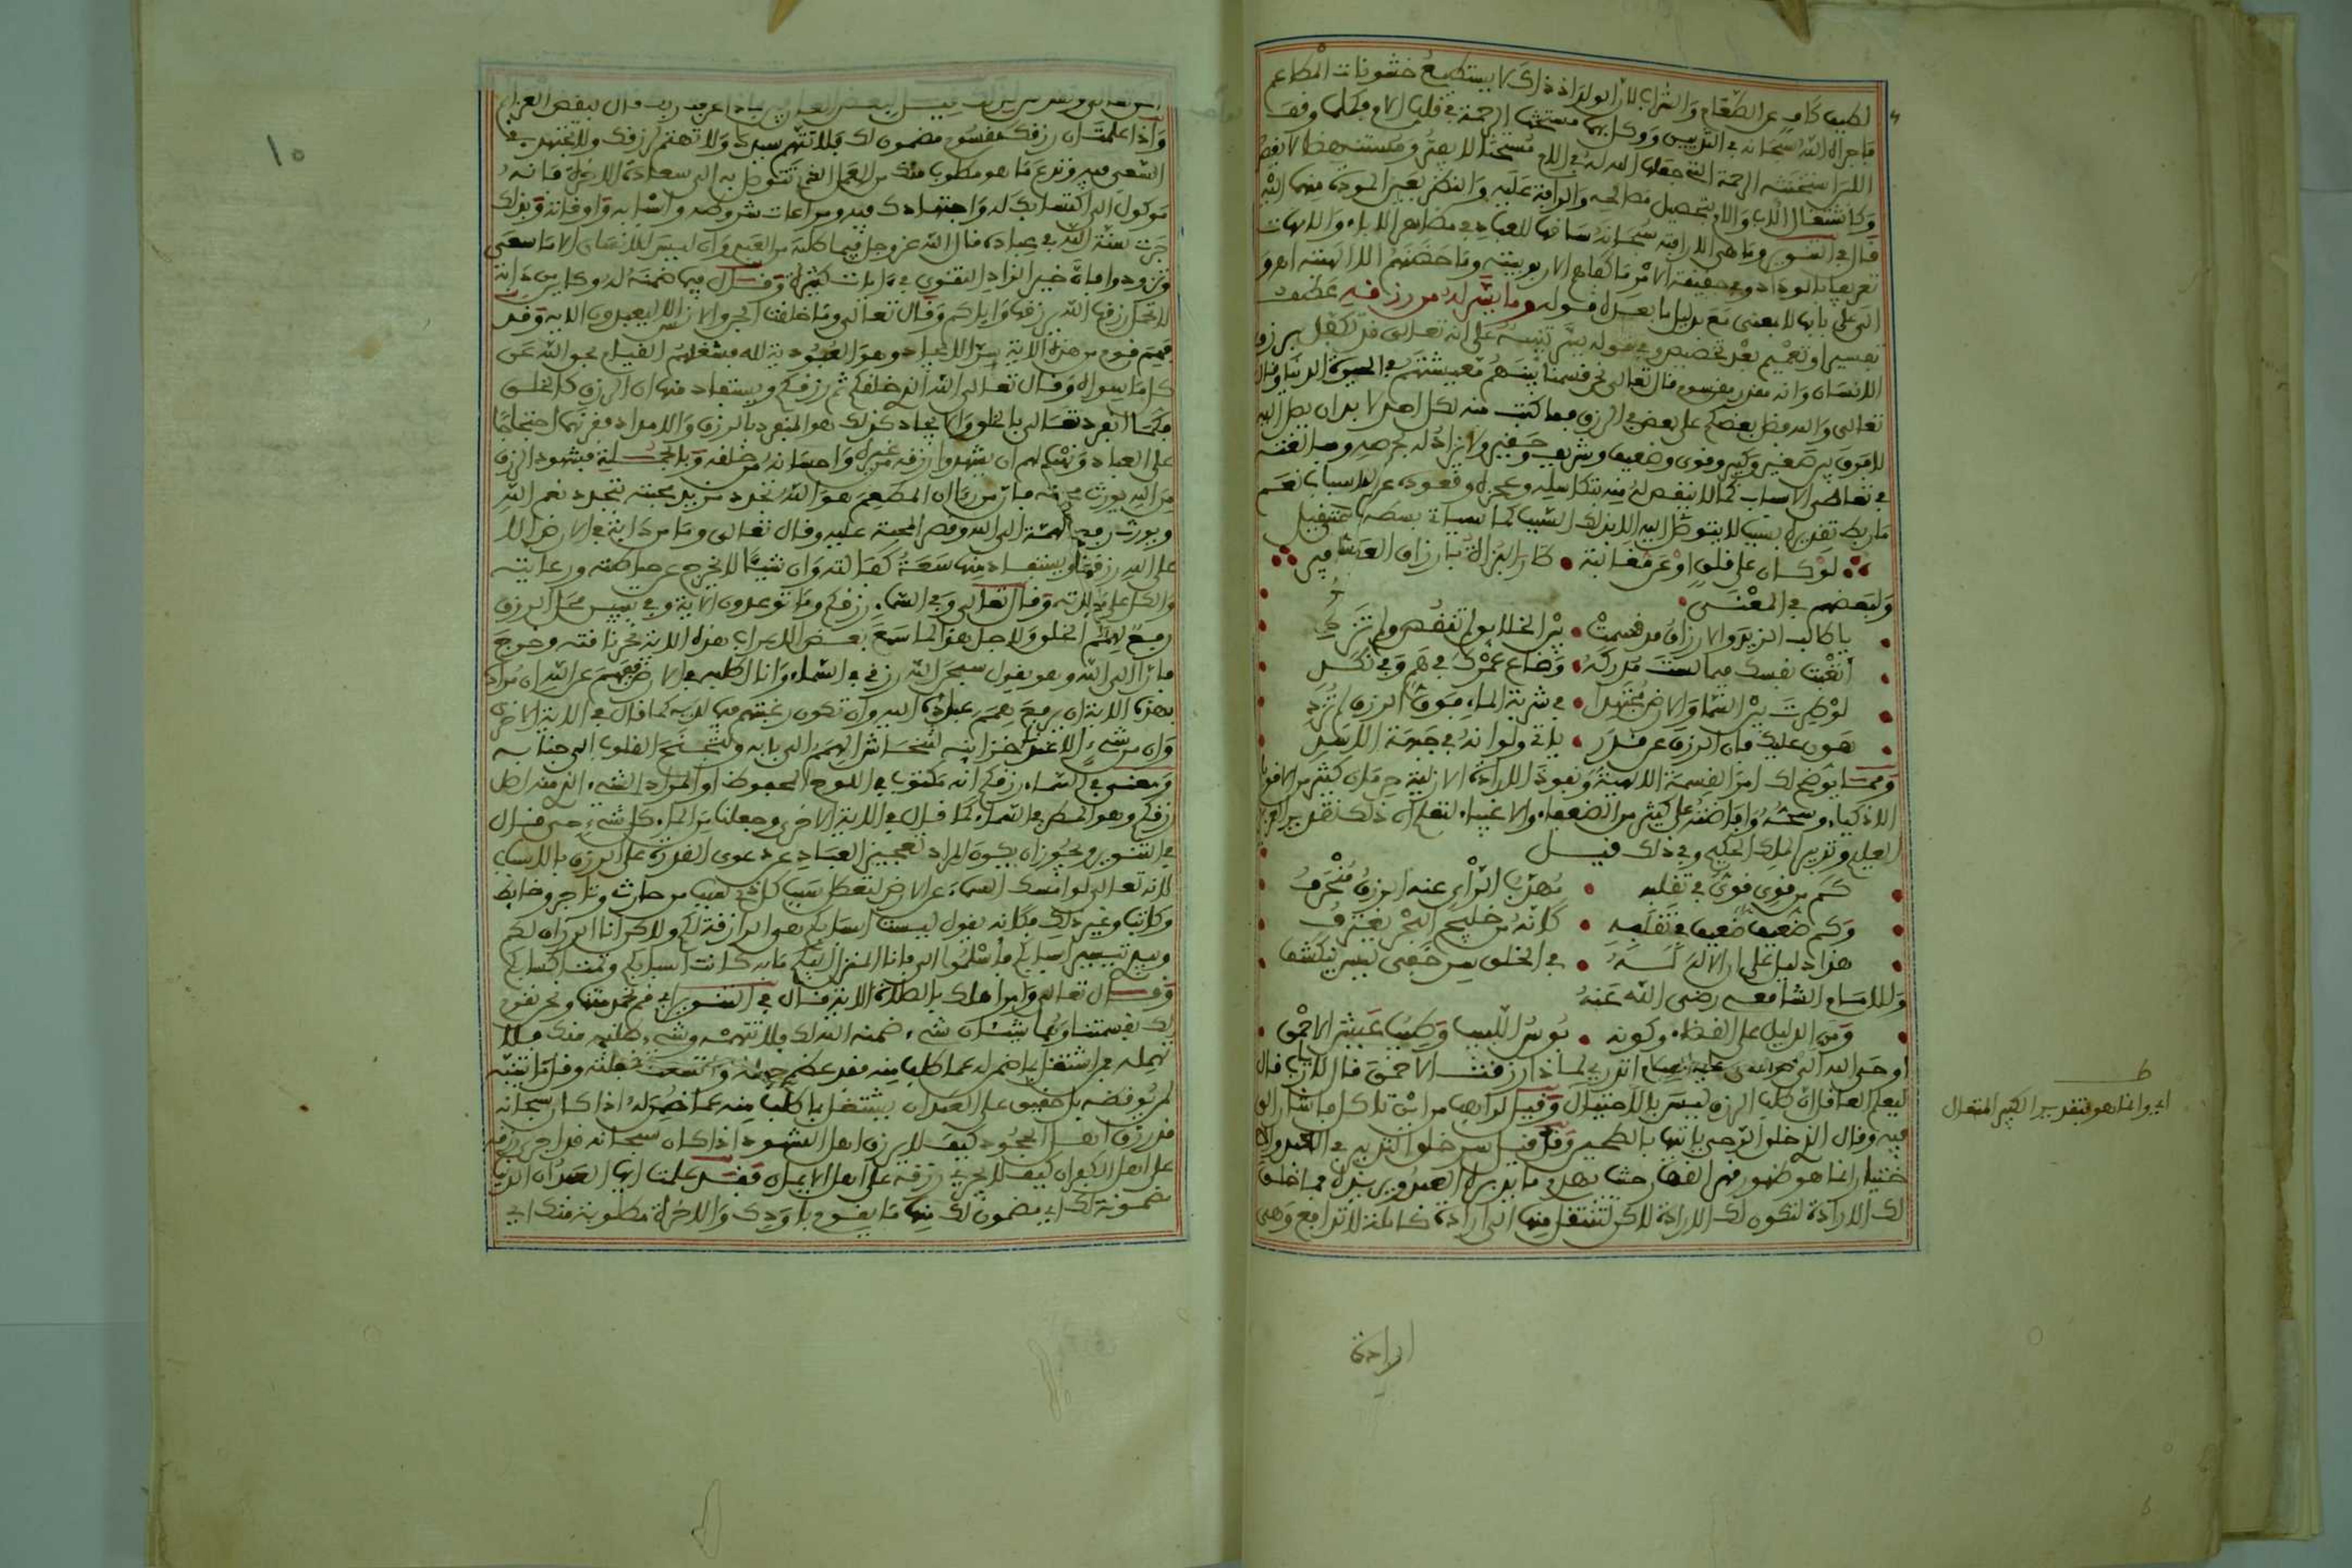 لطيف كاف عن الطعام والشراب لان المولود اذ ذاك لا يستطيع خشونات المطاعم
فاجراه الله سبحانه في الثديين ووكل بهما مستحثة الرحمة في قلب الام فكلما وقف
اللبن استحثته الرحمة التي جعلها الله له في الام مستحثا لا يفتر ومستنهضا لا يقصر
وكاشتغال الاب والام بتحصيل مصالحه والرافة عليه والنظر بعين المودة منهما اليه
قال في التنوير وما هي الا رافته سبحانه ساقها للعباد في مظاهر الاباء والامهات
تعريفا بالوداد وفي حقيقة الامر ما كفلهم الا ربوبيته وما حضنتهم الا الاهيته
الى على بابها لا بمعنى مع بدليل ما بعده قوله وما يسر له من رزقه عطف
تفسير او تعميم بعد تخصيص وفي قوله يسر تنبيه على انه تعالى قد تكفل برزق
الانسان وانه مقدر مقسوم قال تعالى نحن قسمنا بينهم معيشتهم في الحيوة الدنيا وقال
تعالى والله فضل بعضكم على بعض في الرزق فما كتب منه لكل احد لا بد ان يصل اليه
لا فرق بين صغير وكبير وقوي وضعيف وشريف وحقير ولا يزاد له بحرصه ومبالغته
في تعاطي الاسباب كما لا ينقص له منه بتكاسله وعجزه وقعوده عن الاسباب نعم
ما ربط تقديره بسبب لا يتوصل اليه الا بذلك السبب كما سياتي بسطه
لو كان على قلق او عن مغالبة • طار البزاة بارزاق العصافير
ولبعضهم في المعنى
يا طالب الرزق والارزاق قد قسمت • بين الخلايق لم تنقص ولم تزد
اتعبت نفسك فيما لست مدركه • وضاع عمرك في هم وفي نكد
لو طرت بين السما والارض مجتهدا • في شربة الماء فوق الرزق لم تزد
هون عليك فان الرزق عن قدر • ياتي ولو انه في جبهة الاسد
ومما يوضح لك امر القسمة الالهية ونفوذ الارادة الازلية حرمان كثير من الاقوياء
الاذكياء وسحه وافاضته على كثير من الضعفاء والاغبياء لتعلم ان ذلك تقدير العزيز
العليم وتدبير الملك الحكيم وفي ذلك قيل
كم من قوي قوي في تقلبه • مهذب الراي عنه الرزق منحرف
وكم ضعيف ضعيف في تقلبه • كانه من خليج البحر يغترف
هذا دليل على ان الاله له • في الخلق سر خفي ليس ينكشف
وللامام الشافعي رضي الله عنه
ومن الدليل على القضاء وكونه • بؤس اللبيب وطيب عيش الاحمق
اوحى الله الى موسى عليه السلام اتدري لماذا رزقت الاحمق قال لا يا رب قال
ليعلم العاقل ان طلب الرزق ليس بالاحتيال وقيل لراهب من اين تاكل فاشار الى
فيه وقال الذي خلق الرحى ياتيها بالطحين وقد قيل سر خلق التدبير في العبد والا
ختيار انما هو ظهور قهر القهار حيث يهدم ما يدبره العبد ويريده فما خلق
لك الارادة لتكون لك الارادة لاكن لتنتقل منها الى ارادة كاملة لا تدافع وهي
ارادة
اي وانما هو بتقدير الكبير المتعال
١٠
واذا علمت ان رزقك مقسوم مضمون لك فلا تتهم سيدك ولا تهتم لرزقك ولا تجتهد في
السعي فيه وتدع ما هو مطلوب منك من العمل الذي تتوصل به الى سعادة الاخرة فانه
موكول الى اكتسابك له واجتهادك فيه ومراعات شروطه واسبابه واوقاته وبذلك
جرت سنة الله في عباده قال الله عز وجل فيما كلفه من العبد وان ليس للانسان الا ما سعى
وتزودوا فان خير الزاد التقوى في ايات كثيرة وقال فيما ضمنه له وكاين من دابة
لا تحمل رزقها الله يرزقها واياكم وقال تعالى وما خلقت الجن والانس الا ليعبدون الاية وقد
فهم قوم من هذه الاية سر الايجاد وهو العبودية لله فشغلهم القيام بحق الله عن
كل ما سواه وقال تعالى الله الذي خلقكم ثم رزقكم ويستفاد منها ان الرزق كالخلق
فكما انفرد تعالى بالخلق والايجاد كذلك هو المنفرد بالرزق والامداد فقرنهما احتجاجا
على العباد ونهيا لهم ان يشهدوا رزقه من غيره واحسانه من خلقه وبالجملة فشهود الرزق
من الله يورث محبته فان من راى ان المطعم هو الله تجدد مزيد محبته بتجدد نعم الله
ويورث رفع الهمة الى الله وقصر المحبة عليه وقال تعالى وما من دابة في الارض الا
على الله رزقها ويستفاد منها سعة كفالته وان شيئا لا يخرج عن حياطته ورعايته
وقال تعالى وفي السماء رزقكم وما توعدون الاية وفي تبيين محل الرزق
رفع لهمم الخلق ولاجل هذا لما سمع بعض الاعراب هذه الاية نحر ناقته وخرج
فارا الى الله وهو يقول سبحن الله رزقي في السماء وانا اطلبه في الارض ففهم عن الله ان مراده
بهذه الاية ان يرفع همم عباده اليه وان تكون رغبتهم فيما لديه كما قال في الاية الاخرى
وان من شيء الا عندنا خزائنه لتنحاش الهمم الى بابه ولتجنح القلوب الى جنابه
ومعنى في السماء رزقكم انه مكتوب في اللوح المحفوظ او المراد الشيء الذي منه اصل
رزقكم وهو المطر في السماء كما قال في الاية الاخرى وجعلنا من الماء كل شيء حي قال
في التنوير ويجوز ان يكون المراد تعجيز العباد عن دعوى القدرة على الرزق بالاسباب
لانه تعالى لو امسك السماء عن الارض لتعطل سبب كل ذي سبب من حارث وتاجر وخايط
وكاتب وغير ذلك فكانه يقول ليست اسبابكم هي الرازقة لكم ولاكن انا الرازق لكم
وبيدي تيسير اسبابكم فانا المنزل لكم ما به كانت اسبابكم وتمت اكسابكم
وقال تعالى وامر اهلك بالصلاة الاية قال في التنوير اي قم بخدمتنا ونحن نقوم
لك بقسمتنا وهما شيئان شيء ضمنه الله لك فلا تتهمه وشيء طلبه منك فلا
تهمله فمن اشتغل بما ضمن له عما طلب منه فقد عظم جهله واتسعت غفلته وقل ما ينتبه
لمن يوقظه بل حقيق على العبد ان يشتغل بما طلب منه عما ضمن له اذا كان سبحانه
قد رزق اهل الجحود كيف لا يرزق اهل الشهود اذا كان سبحانه قد اجرى رزقه
على اهل الكفران كيف لا يجري رزقه على اهل الايمان وقد علمت ايها العبد ان الدنيا
مضمونة لك اي مضمون لك منها ما يقوم باودك والاخرة مطلوبة منك اي